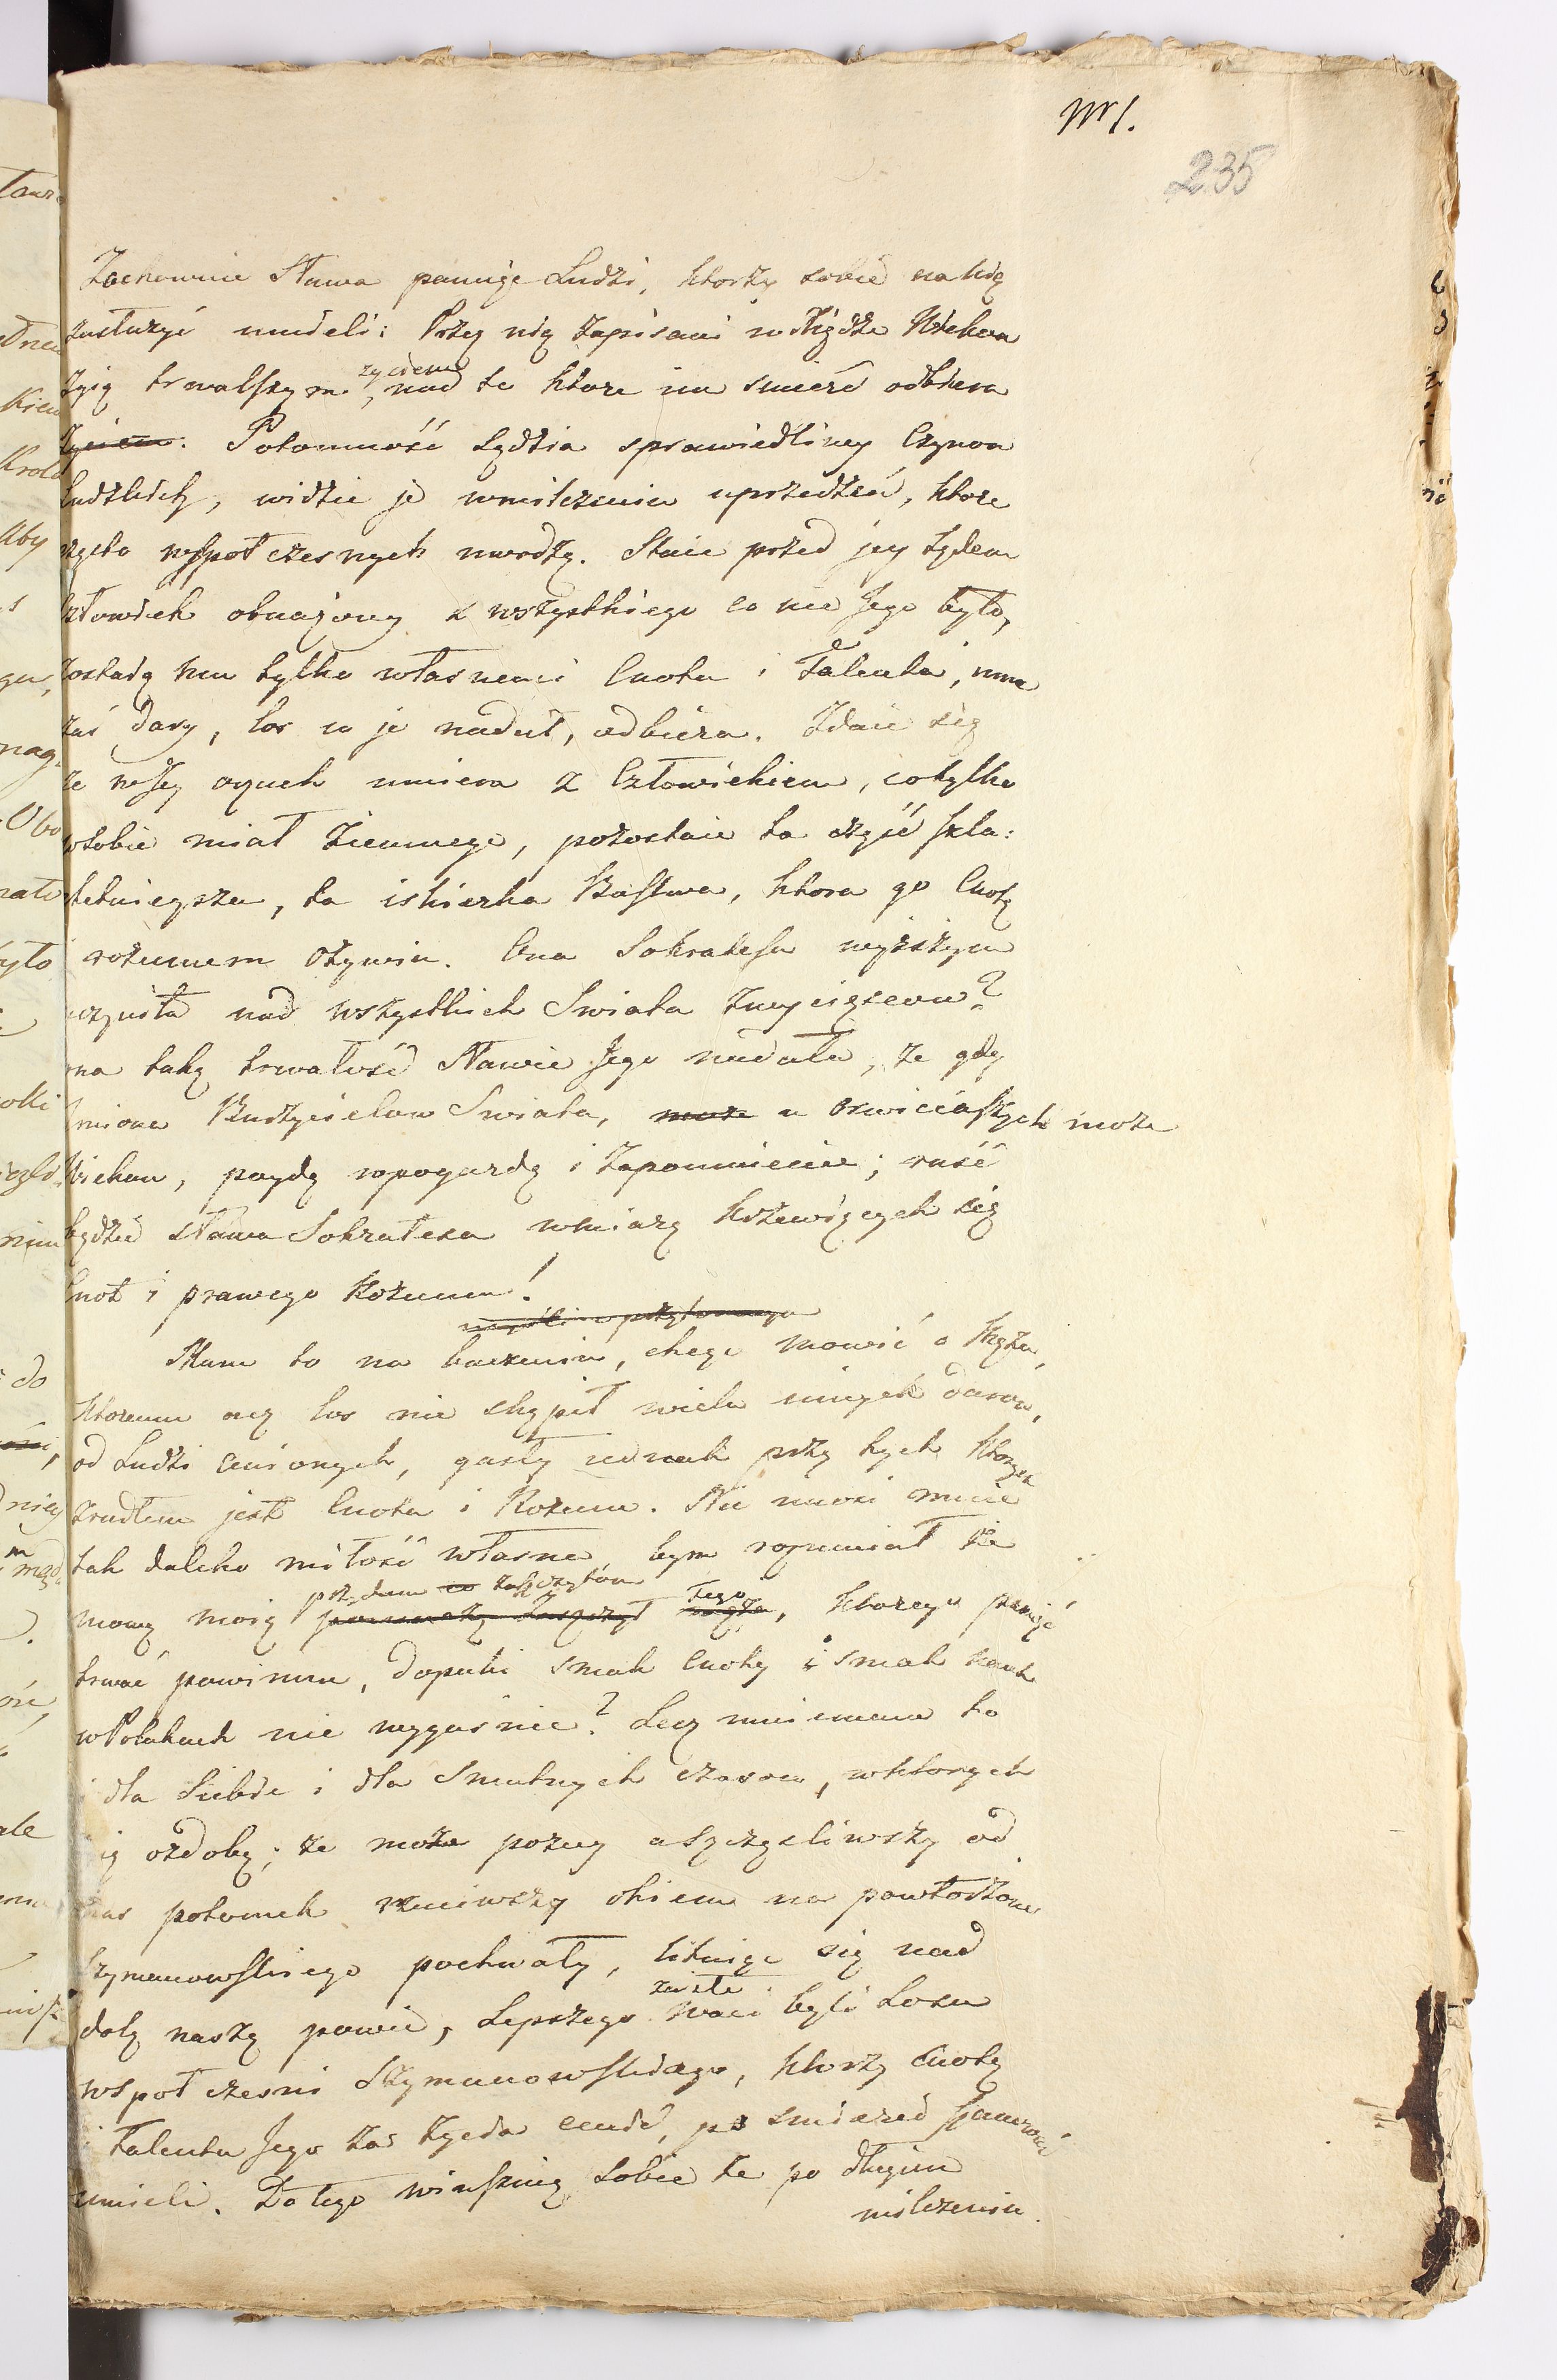 Nr 1.
235
Zachownie Sława pamięć Ludzi, ktorzy sobie na nię
zasłużyć umieli: Przez nię zapisani w Księdze Wiekow
żyią trwalszym życiem, nad to ktore im smierć odbiera
życiem. Potomność sędzia sprawiedliwy Czynow
ludzkich, widzie je w milczeniu uprzedzeń, ktore
często wspołczesnych uwodzą. Staie przed jey sądem
Człowiek obnażony z wszystkiego co nie Jego było,
zostaią mu tylko własnemi Cnota i Talenta, inne
zaś dary, los co je nadał, odbiera. Zdaie się
że w Jey oczach umiera z Człowiekiem, co tylko
w sobie miał ziemnego, pozostaie ta część szla:
chetnieysza, ta iskierka Bostwa, ktora go Cnotą
i rozumem ożywia. Ona Sokratesa wyższym
uczyniła nad wszystkich Swiata zwyciężcow?
ona taką trwałość Sławie Jego nadała, że gdy
Imiona Burzycielow Swiata, może u oswieceńszych może
Wiekow, poydą w pogardę i zapomnienie; rość
będzie sława Sokratesa w miarę krzewiących się
Cnot i prawego Rozumu!
Mam to na baczeniu, chcąc mowić o Mężu,
ktoremu acz los nie skąpił wielu innych darow,
od Ludzi cenionych, gasły jednak przy tych ktorych
zrudłem jest Cnota i Rozum. Nie unosi mnie
tak daleko miłość własna, bym rozumiał że
mową moią przydam co zaszczytow pomnożę zaszczyt męża Tego, ktorego pamięć
trwać powinna, dopuki smak Cnoty i smak nauk
w Polakach nie wygaśnie? Lecz mniemam to
i dla Siebie i dla Smutnych czasow, w ktorych
żyię ozdobę; że może pozny a szczęsliwszy od
nas potomek rzuciwszy okiem na powtorzone
Szymanowskiego pochwały, lituiąc się nad
dolą naszą powie, Lepszego zaiste warci byli Losu
wspołczesni Szymanowskiego, ktorzy Cnoty
i talenta Jego za życia cenić, po smierci szanować
umieli. Do tego winszuię sobie że po długim
milczeniu